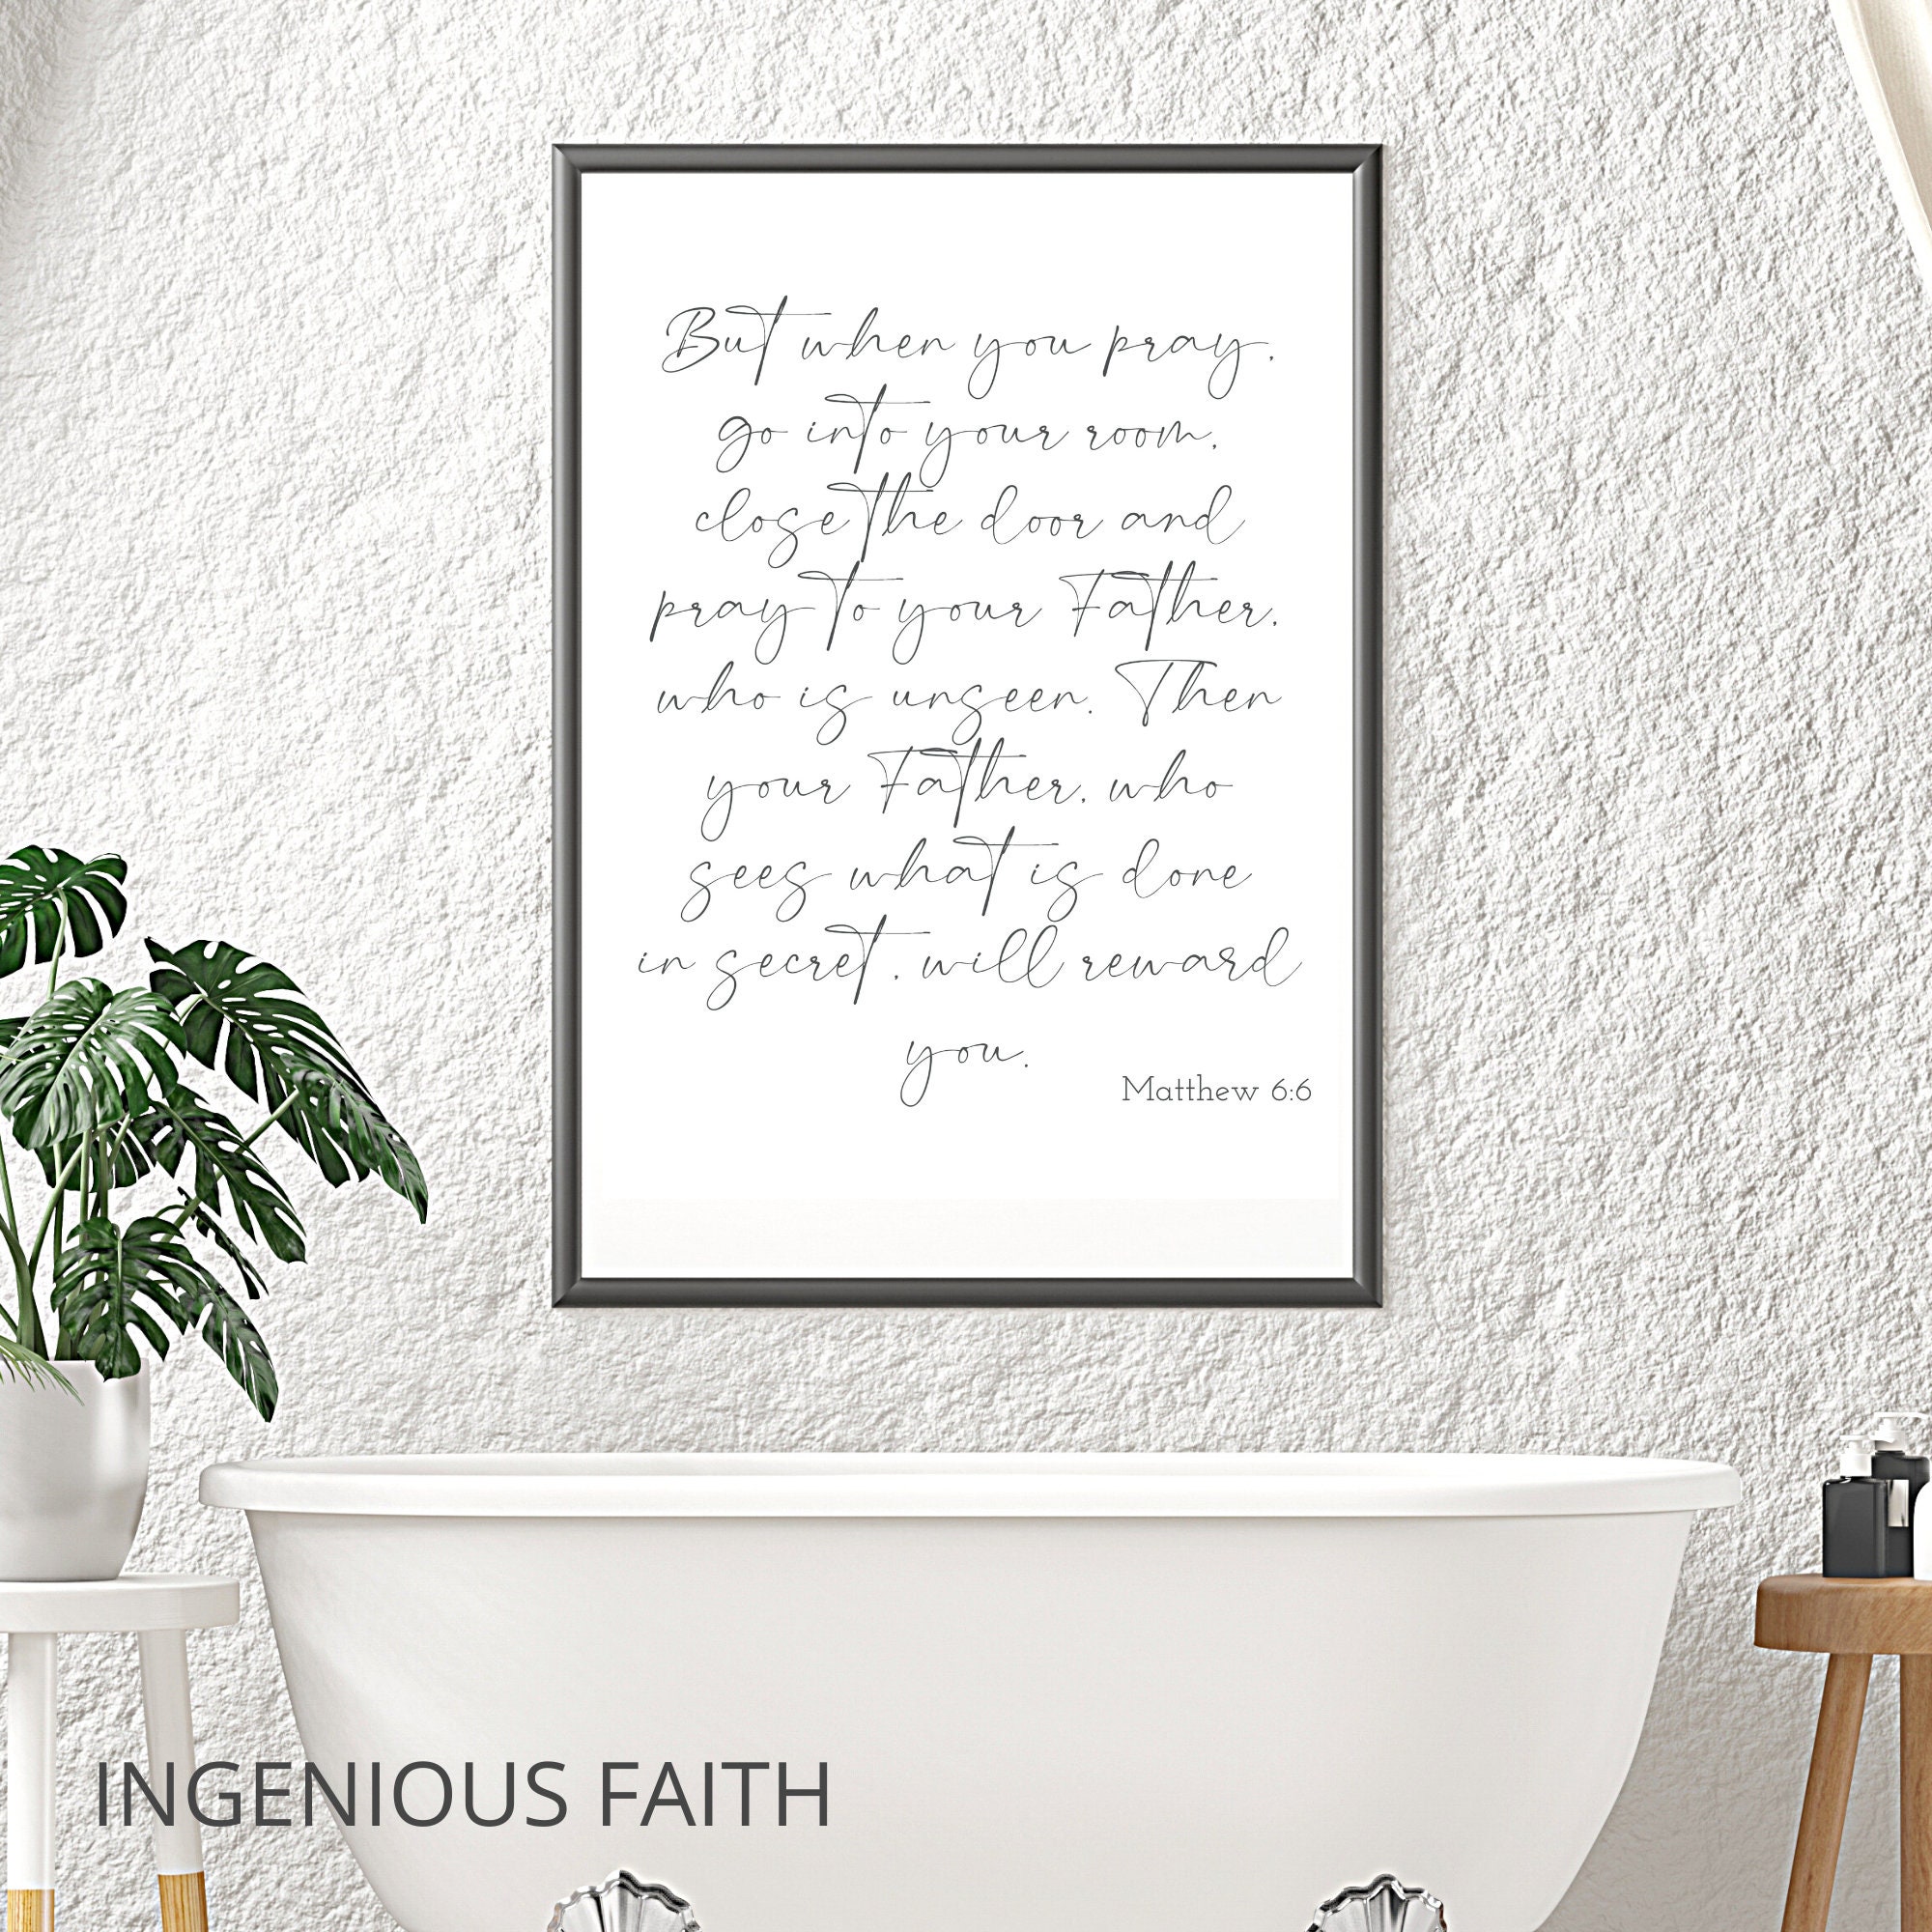 But when you pray,
go into your room,
close the door and
pray to your Father,
who is unseen. Then
your Father, who
sees what is done
in secret, will reward
you.
Matthew 6:6
INGENIOUS FAITH